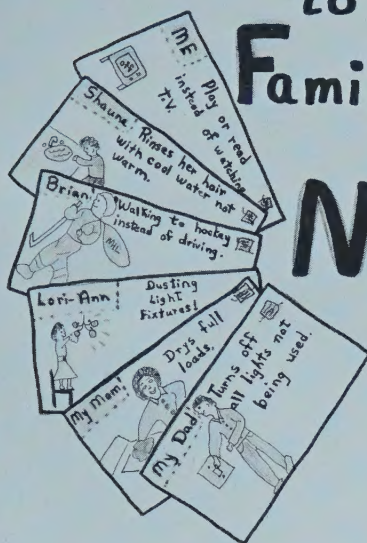 to
Fami
N
ME:
Play or read
instead of watching
T.V.
off
Shauna:
Rinses her hair
with cool water not
warm.
Brian:
Walking to hockey
instead of driving.
NHL
Lori-Ann
Dusting
Light
Fixtures!
My Mom:
Drys full
loads.
My Dad:
Turns off
all lights not
being used.